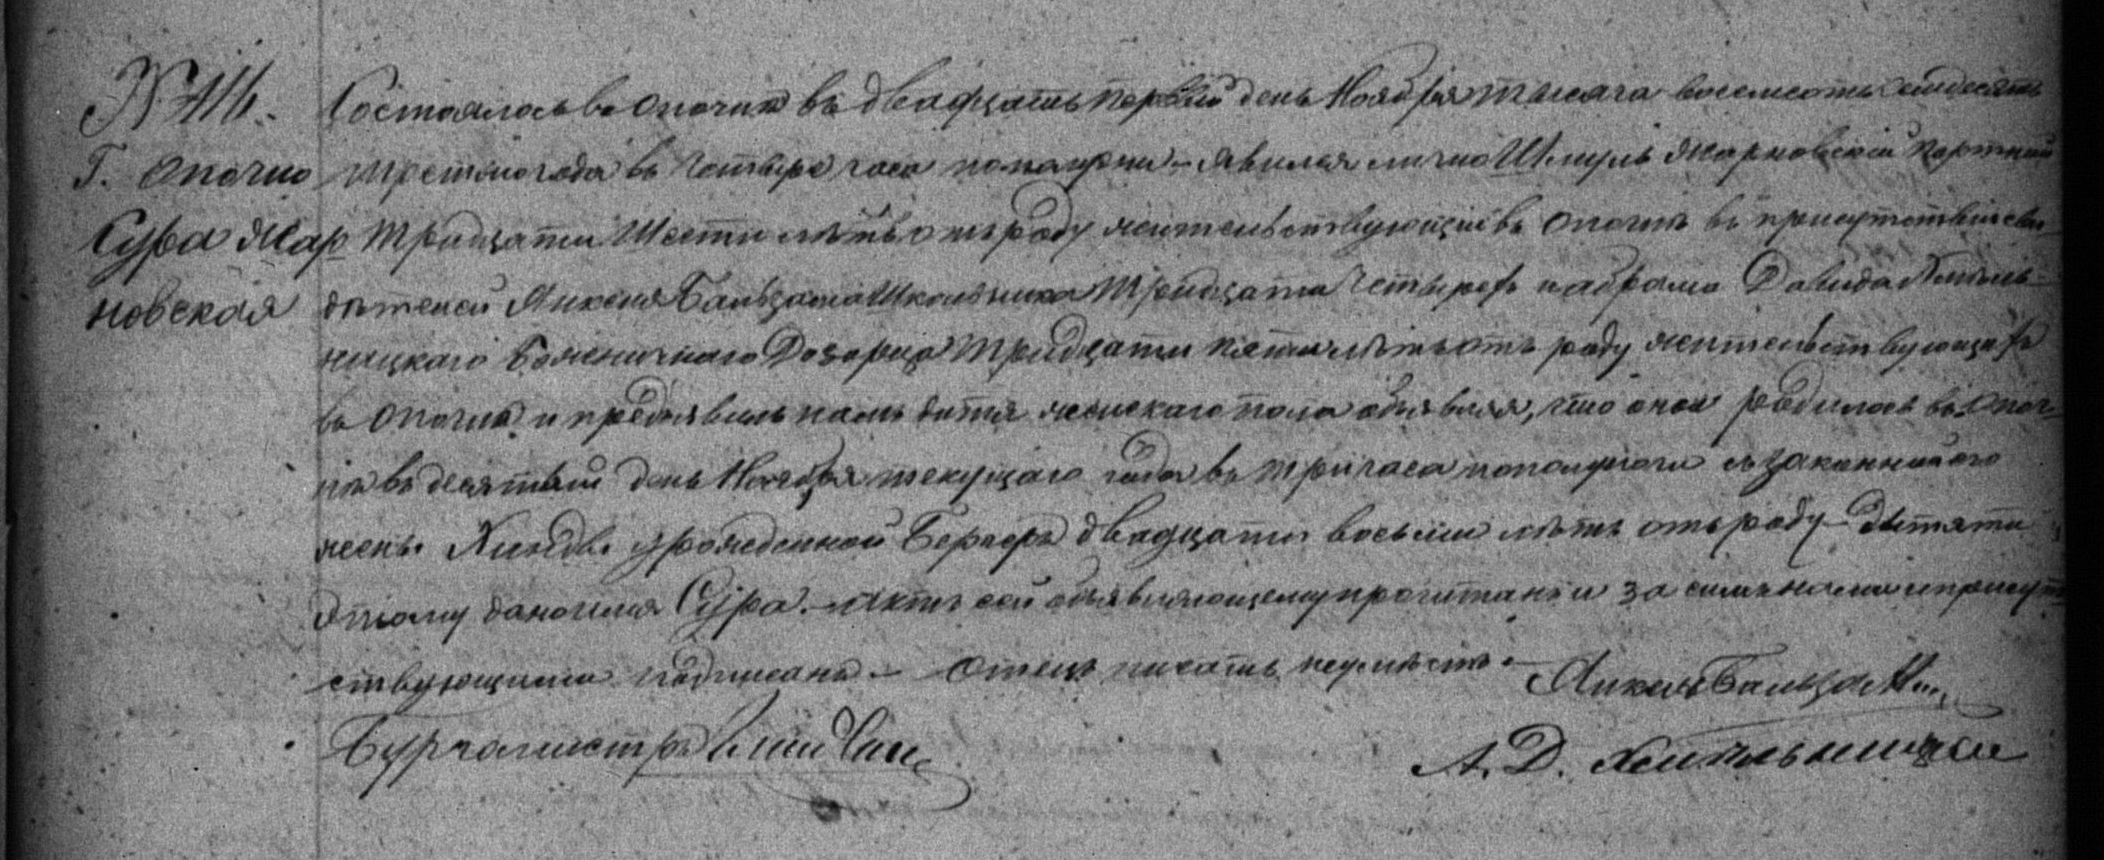 № 111.
Г. Опочно
Сура Жар
новская
Состоялось въ Опочнѣ въ двадцать первый день Ноября тысяча восемсотъ семдесять
третьяго года въ четыре часа пополудни – явился лично Шмуль Жарновскій портной
тридцати шести лѣтъ отъ роду жительствующій въ Опочнѣ въ присутствіи сви-
дѣтелей Янкеля Бальзама Школьника тридцати четырехъ и Абрама Давида Хмѣль-
ницкаго Божничнаго Дозорца тридцати пяти лѣтъ отъ роду жительствующихъ
въ Опочнѣ и предъявилъ намъ дитя женскаго пола объявляя, что оное родилось въ Опоч-
нѣ въ десятый день Ноября текущаго года въ три часа пополуночи съ законной его
жены Хинды урожденной двадцати восьми лѣтъ отъ роду – дитяти
этому дано имя Сура. – Актъ сей объявляющему прочитанъ и за симъ нами и присут-
ствующими подписанъ – Отецъ писать неумѣетъ. –
Янкель Бальзам
Бургомистръ
А. Д. Хмѣльницкій